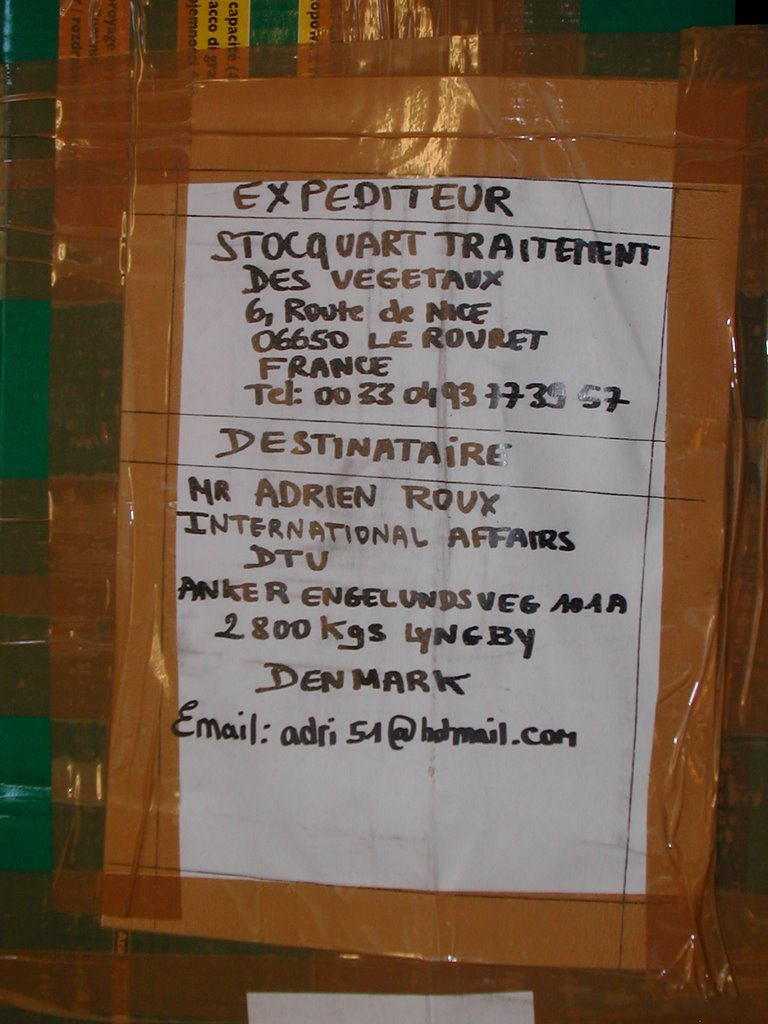 capacité (
acco di gra
EXPEDITEUR
STOCQUART TRAITEMENT
DES VEGETAUX
6, Route de NICE
06650 LE ROURET
FRANCE
Tel: 00 33 04 93 77 39 57
DESTINATAIRE
MR ADRIEN ROUX
INTERNATIONAL AFFAIRS
DTU
ANKER ENGELUNDSVEG 101A
2800 Kgs LYNGBY
DENMARK
Email: adri51@hotmail.com